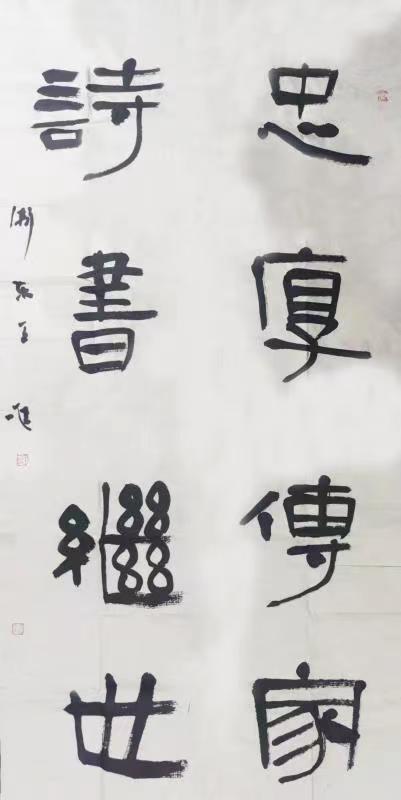 忠厚傳家
詩書繼世